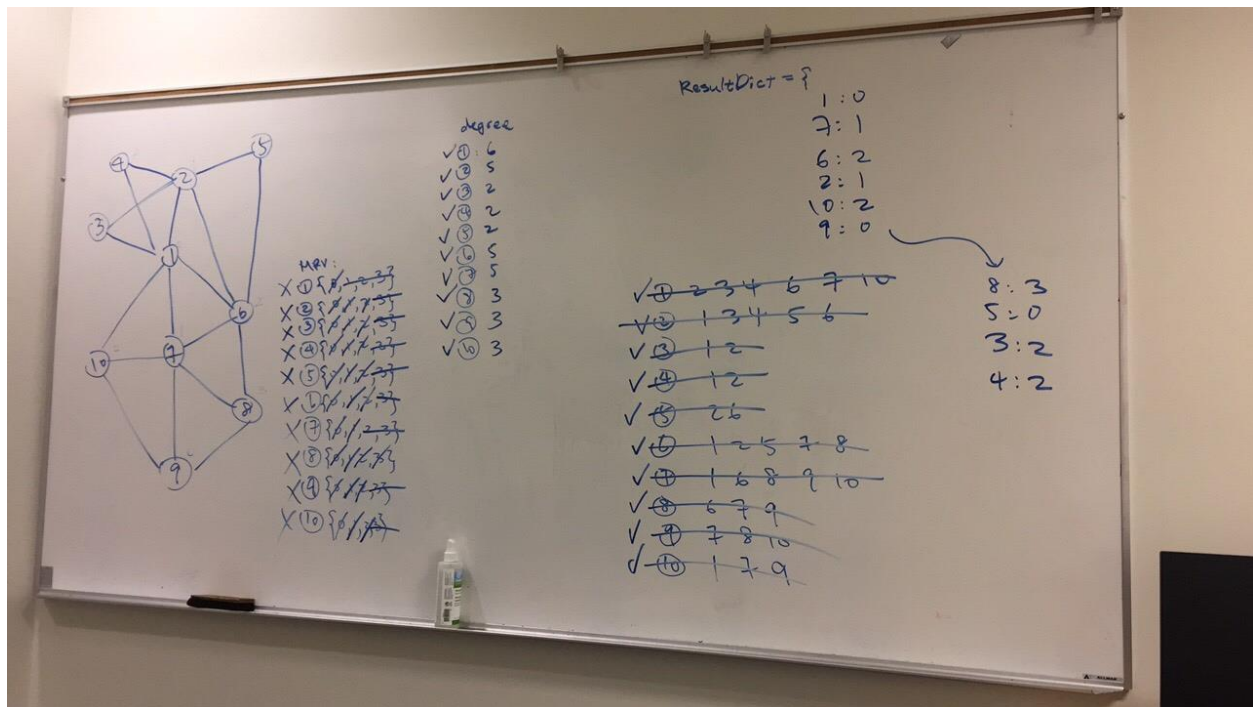 4
5
2
3
1
6
10
7
8
9
MRV:
X ① {0, 1, 2, 3}
X ② {0, 1, 2, 3}
X ③ {0, 1, 2, 3}
X ④ {0, 1, 2, 3}
X ⑤ {0, 1, 2, 3}
X ⑦ {0, 1, 2, 3}
X ⑧ {0, 1, 2, 3}
X ⑨ {0, 1, 2, 3}
X ⑩ {0, 1, 2, 3}
degree
✓ ① : 6
✓ ② 5
✓ ③ 2
✓ ④ 2
✓ ⑤ 2
✓ ⑥ 5
✓ ⑦ 5
✓ ⑧ 3
✓ ⑨ 3
✓ ⑩ 3
ResultDict = {
1 : 0
7 : 1
6 : 2
2 : 1
10 : 2
9 : 0
8 : 3
5 : 0
3 : 2
4 : 2
✓ ① 2 3 4 6 7 10
✓ ② 1 3 4 5 6
✓ ③ 1 2
✓ ④ 1 2
✓ ⑤ 2 6
✓ ⑥ 1 2 5 7 8
✓ ⑦ 1 6 8 9 10
✓ ⑧ 6 7 9
✓ ⑨ 7 8 10
✓ ⑩ 1 7 9